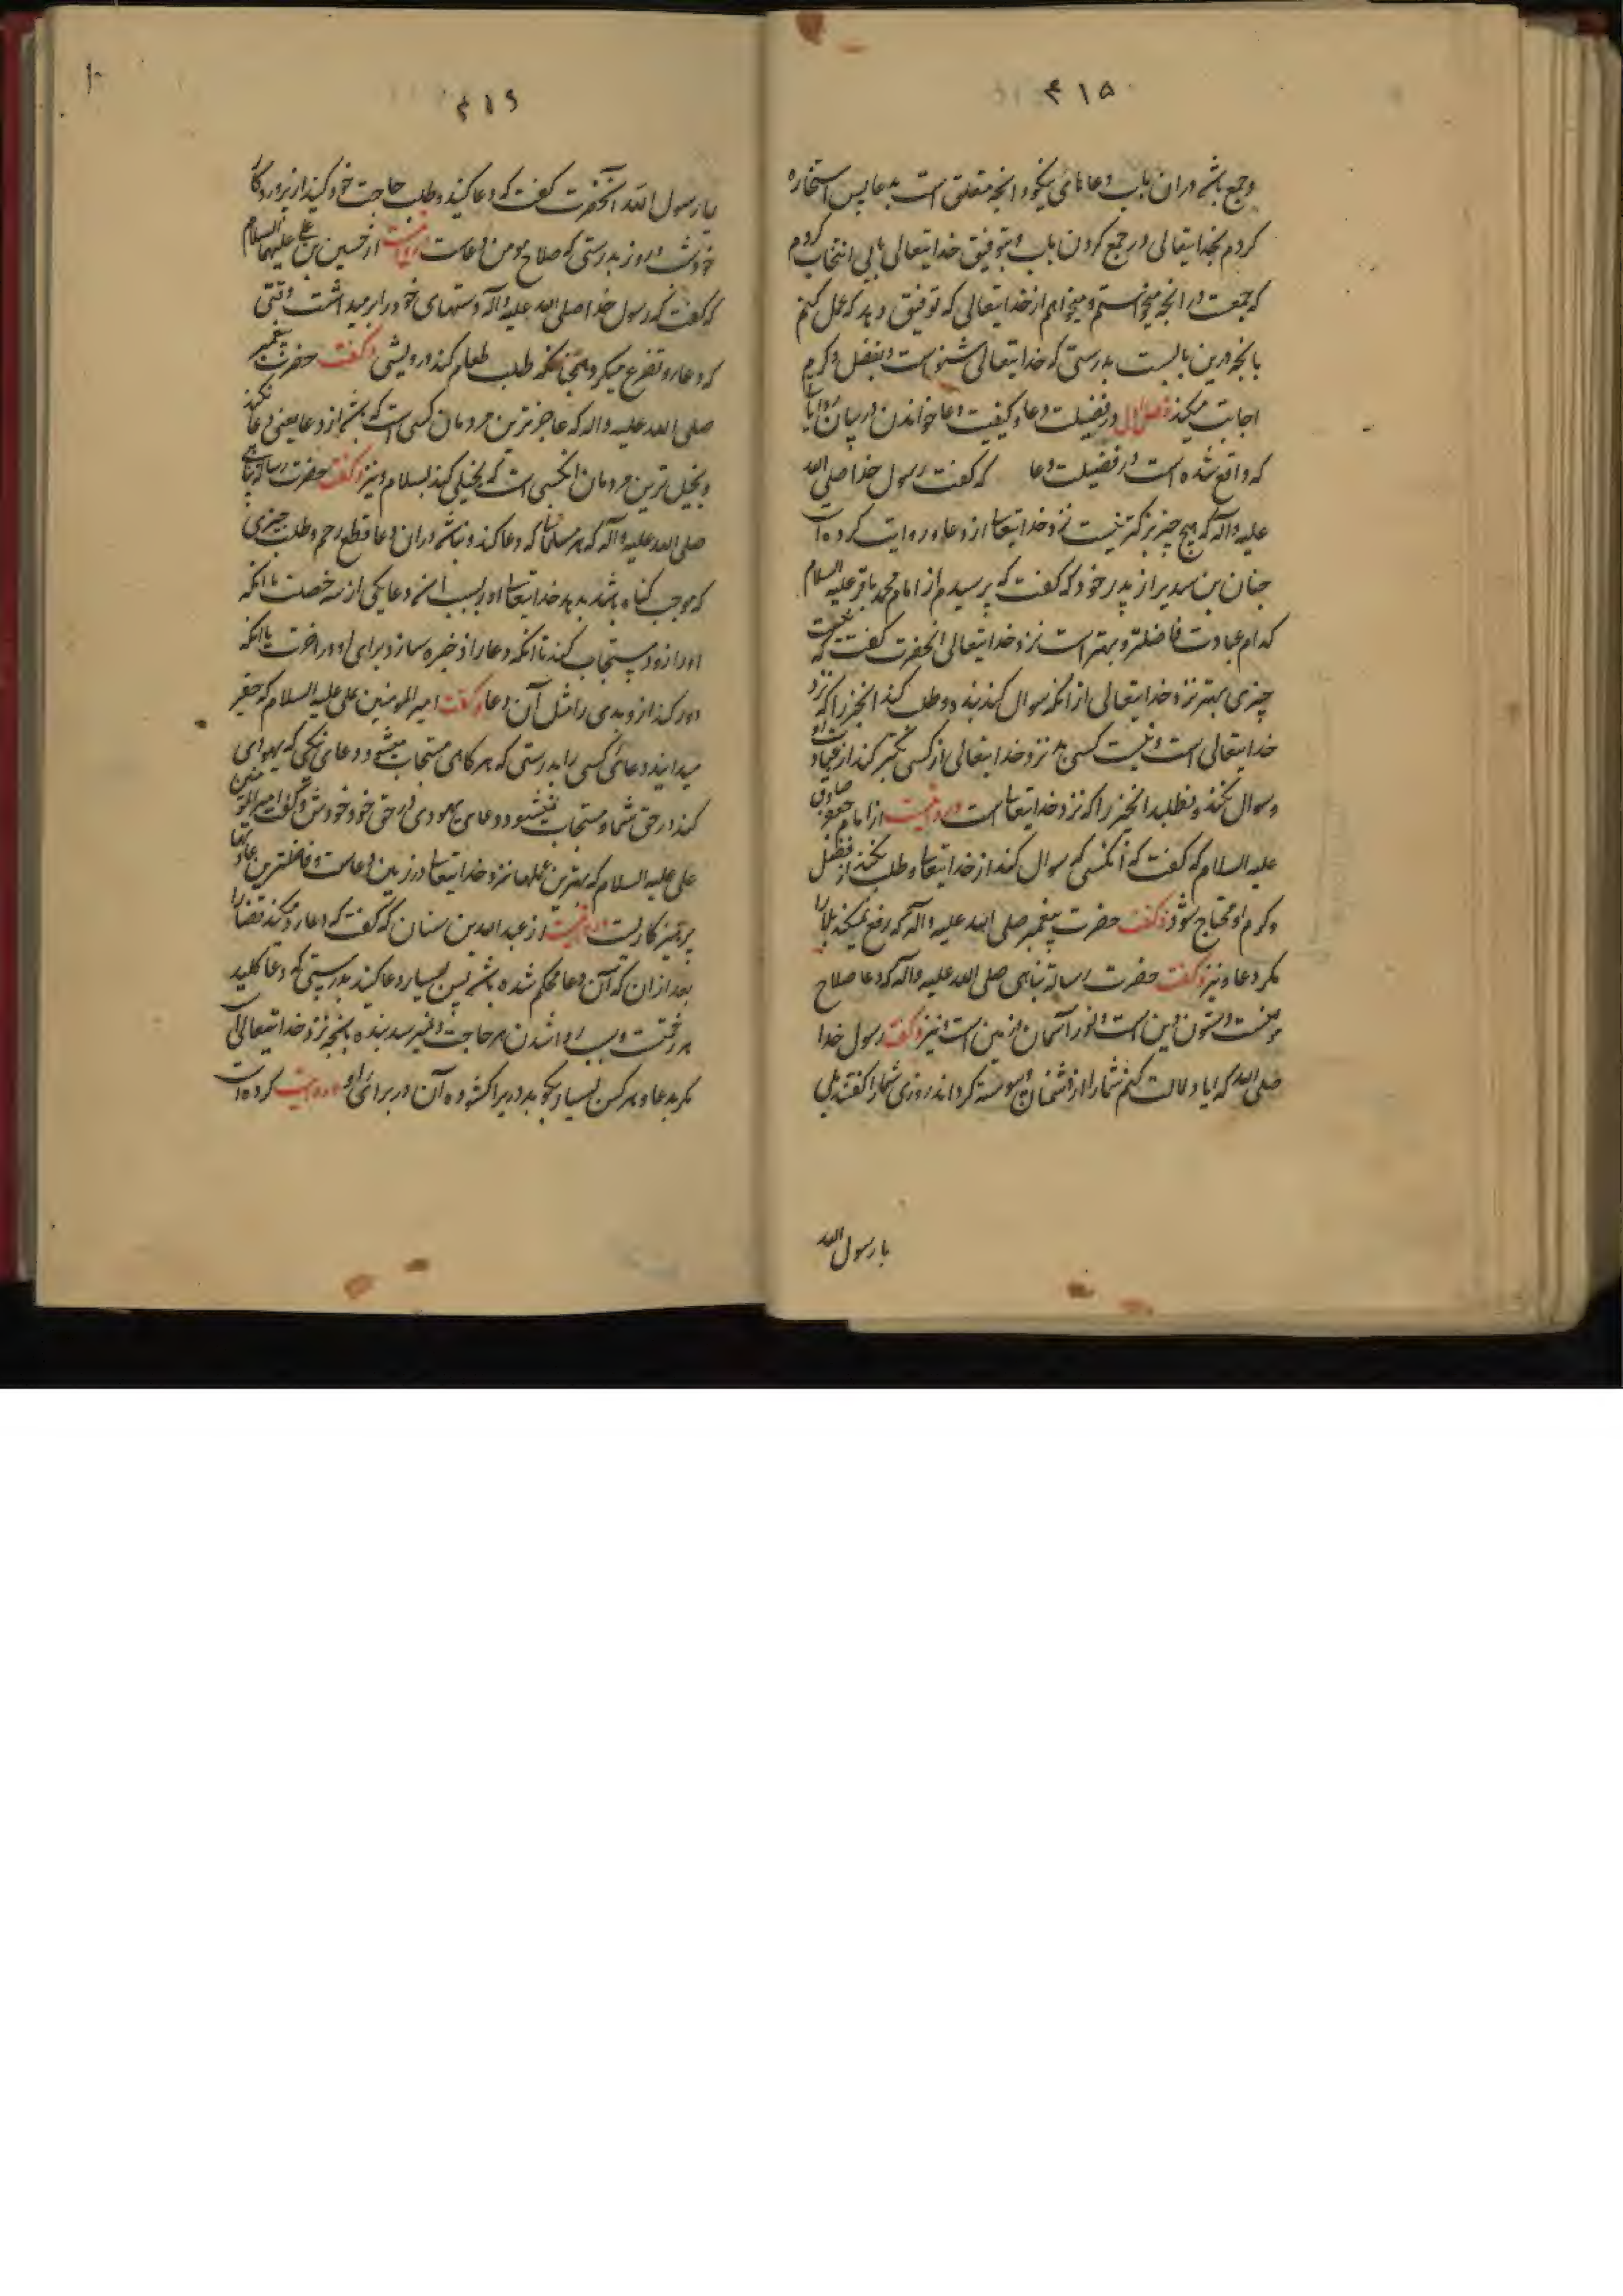 ۴۱۵
و جمع باشد در آن باب دعاهای نیکو و آنچه متعلق است بدعا پس استخاره
کردم بخدایتعالی در جمع کردن باب و بتوفیق خدایتعالی بابی انتخاب کردم
که جمعست در آنچه میخواستم و میخواهم از خدایتعالی که توفیق دهد که عمل کنم
بآنچه درین بابست بدرستی که خدایتعالی شنواست و بفضل و کرم
اجابت میکند فصل اول در فضیلت دعا و کیفیت دعا خواندن در بیان روایات
که واقع شده است در فضیلت دعا که گفت رسول خدا صلی الله
علیه و آله که هیچ چیز بزرگتر نیست نزد خدایتعالی از دعا و روایت کرده است
حنان بن سدیر از پدر خود که گفت که پرسیدم از امام محمد باقر علیه السلام
کدام عبادت فاضلتر و بهتر است نزد خدایتعالی آنحضرت گفت که نیست
چیزی بهتر نزد خدایتعالی از آنکه سوال کند بنده و طلب کند آنچیز را که نزد
خدایتعالی است و نیست کسی بد نزد خدایتعالی از کسی تکبر کند از عبادت او
و سوال نکند و نطلبد آنچیز را که نزد خدایتعالی است و مرویست از امام جعفر صادق
علیه السلام که گفت که آنکسی که سوال کند از خدایتعالی و طلب نکند از فضل
و کرم او محتاج شود و گفت حضرت پیغمبر صلی الله علیه و آله که رفع نمیکند بلا را
مگر دعا و نیز گفت حضرت رسالة پناهی صلی الله علیه و آله که دعا صلاح
مؤمنست و ستون دین است و نور آسمان و زمین است و نیز گفت رسول خدا
صلی الله که آیا دلالت کنم شما را از دشمنان و پیوسته گرداند روزی شما را گفتند بلی
یا رسول الله
۴۱۶
یا رسول الله آنحضرت گفت که دعا کنید و طلب حاجت خود کنید از پروردگار
خود شب و روز بدرستی که صلاح مومن دعاست مرویست از حسین بن علی علیهما السلام
که گفت که رسول خدا صلی الله علیه و آله دستهای خود را بر میداشت وقتی
که دعا و تضرع میکرد همچنانکه طلب طعام کند درویشی و گفت حضرت پیغمبر
صلی الله علیه و اله که عاجز ترین مردمان کسی است که عاجز باشد از دعا یعنی دعا نکند
و بخیل ترین مردمان آنکسی است که بخیلی کند بسلام و نیز گفت حضرت رسالة پناهی
صلی الله علیه و آله که هر مسلمانی که دعا کند و نباشد در آن دعا قطع رحم و طلب چیزی
که موجب گناه باشد بدهد خدایتعالی او را بسبب آن دعا یکی از سه خصلت یا آنکه
او را زود مستجاب کند یا آنکه دعا را ذخیره سازد برای او در آخرت یا آنکه
دور کند از وبدی را مثل آن دعا و گفت امیر المومنین علی علیه السلام که حقیر
میدانید دعای کسی را بدرستی که هر گاهی مستجاب میشود دعای نیکی که یهودی
کند در حق شما و مستجاب نمیشود دعای یهودی در حق خود خودش و گفت امیر المومنین
علی علیه السلام که بهترین عملها نزد خدایتعالی در زمین دعاست و فاضلترین عبادتها
پرهیزکاریست مرویست از عبدالله بن سنان که گفت که دعا رد میکند قضا را
بعد از آن که آن دعا محکم شده باشد پس بسیار دعا کنید بدرستی که دعا کلید
هر رحمتست و سبب روا شدن هر حاجت و نمیرسد بنده بآنچه نزد خدایتعالی است
مگر بدعا و هر کس بسیار بکوبد در یرا گشوده آن در برای او و مرویست کرده است